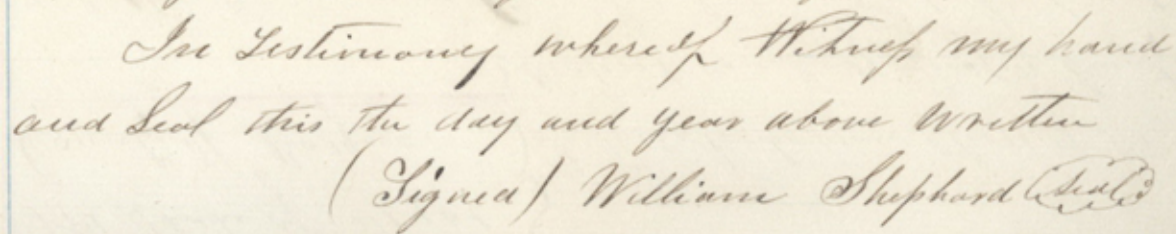 In Testimony whereof Witness my hand
and Seal this the day and year above written
(Signed) William Shephard (Seal)